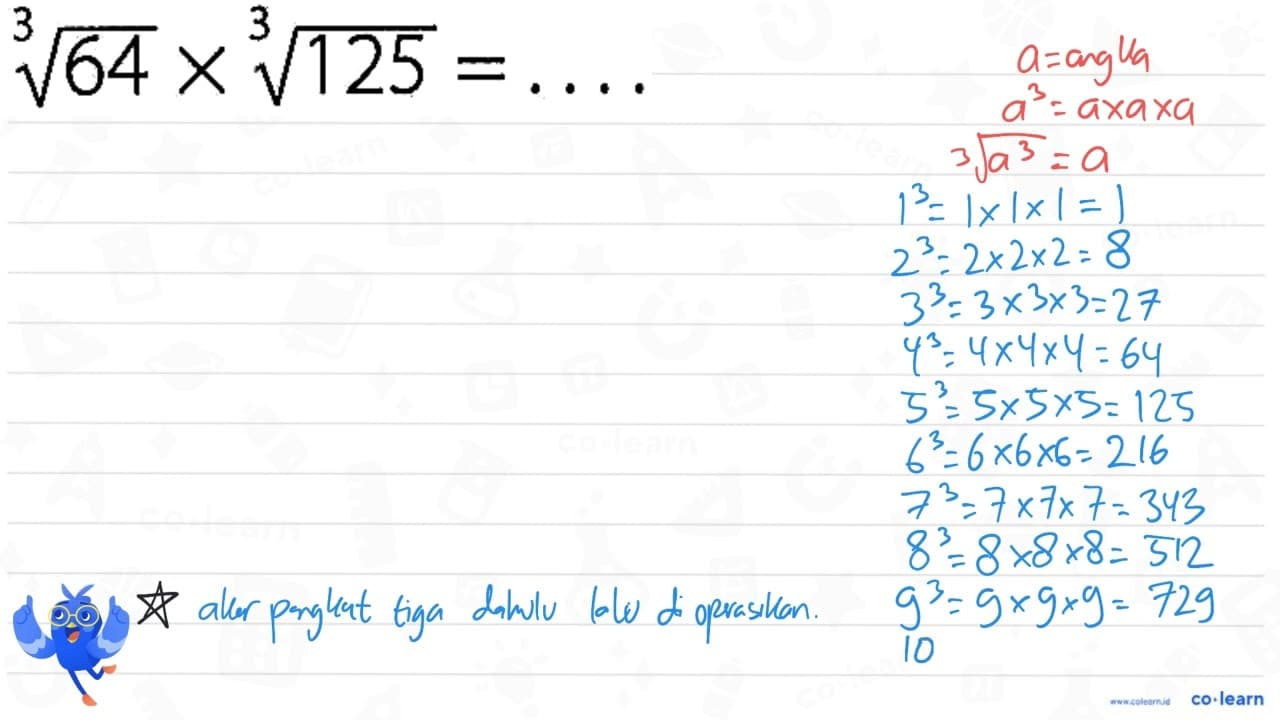 ∛64 × ∛125 = ....
a = angka
a³ = a × a × a
∛a³ = a
1³ = 1 × 1 × 1 = 1
2³ = 2 × 2 × 2 = 8
3³ = 3 × 3 × 3 = 27
4³ = 4 × 4 × 4 = 64
5³ = 5 × 5 × 5 = 125
6³ = 6 × 6 × 6 = 216
7³ = 7 × 7 × 7 = 343
8³ = 8 × 8 × 8 = 512
9³ = 9 × 9 × 9 = 729
10
☆ akar pangkat tiga dahulu lalu di operasikan.
www.colearn.id co·learn